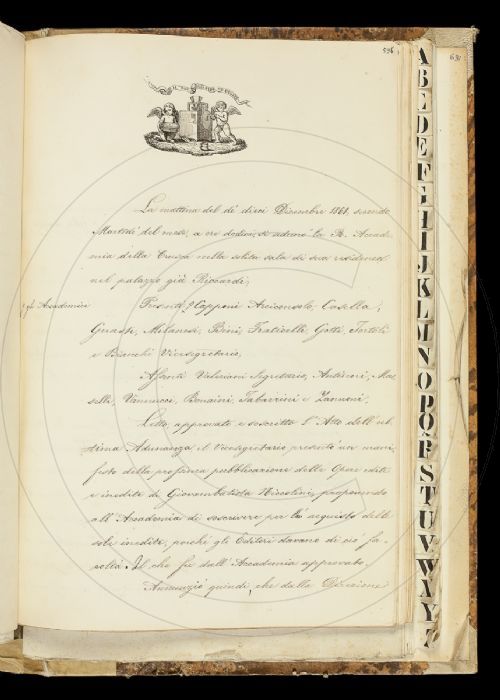 596
631
La mattina del dì dieci Dicembre 1861, secondo
Martedì del mese, a ore dodici, si adunò la R. Accade-
mia della Crusca nella solita sala di sua residenza
nel palazzo già Riccardi;
gli Accademici
Presenti i Capponi Arciconsolo, Casella,
Gherardi, Milanesi, Bini, Fraticelli, Gotti, Tortoli
e Bianchi Vicesegretario,
Assenti Valeriani Segretario, Antinori, Mas-
selli, Vannucci, Bonaini, Tabarrini e Zannoni,
Letto approvato e soscritto l'Atto dell'ul-
tima Adunanza, il Vicesegretario presentò un mani-
festo della prossima pubblicazione delle Opere edite
e inedite di Giovambatista Niccolini, proponendo
all'Accademia di soscrivere per lo acquisto delle
sole inedite, poichè gli Editori davano di ciò fa-
coltà. Il che fu dall'Accademia approvato.
Annunziò quindi, che dalla Direzione
A
B
C
D
E
F
G
H
I
J
K
L
M
N
O
P
Q
R
S
T
U
V
W
X
Y
Z